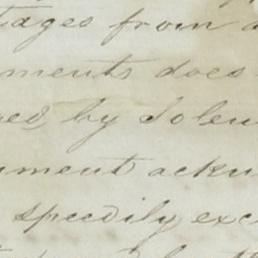 tages from a
ments does
ed by Solem
ment ackn
speedily exc